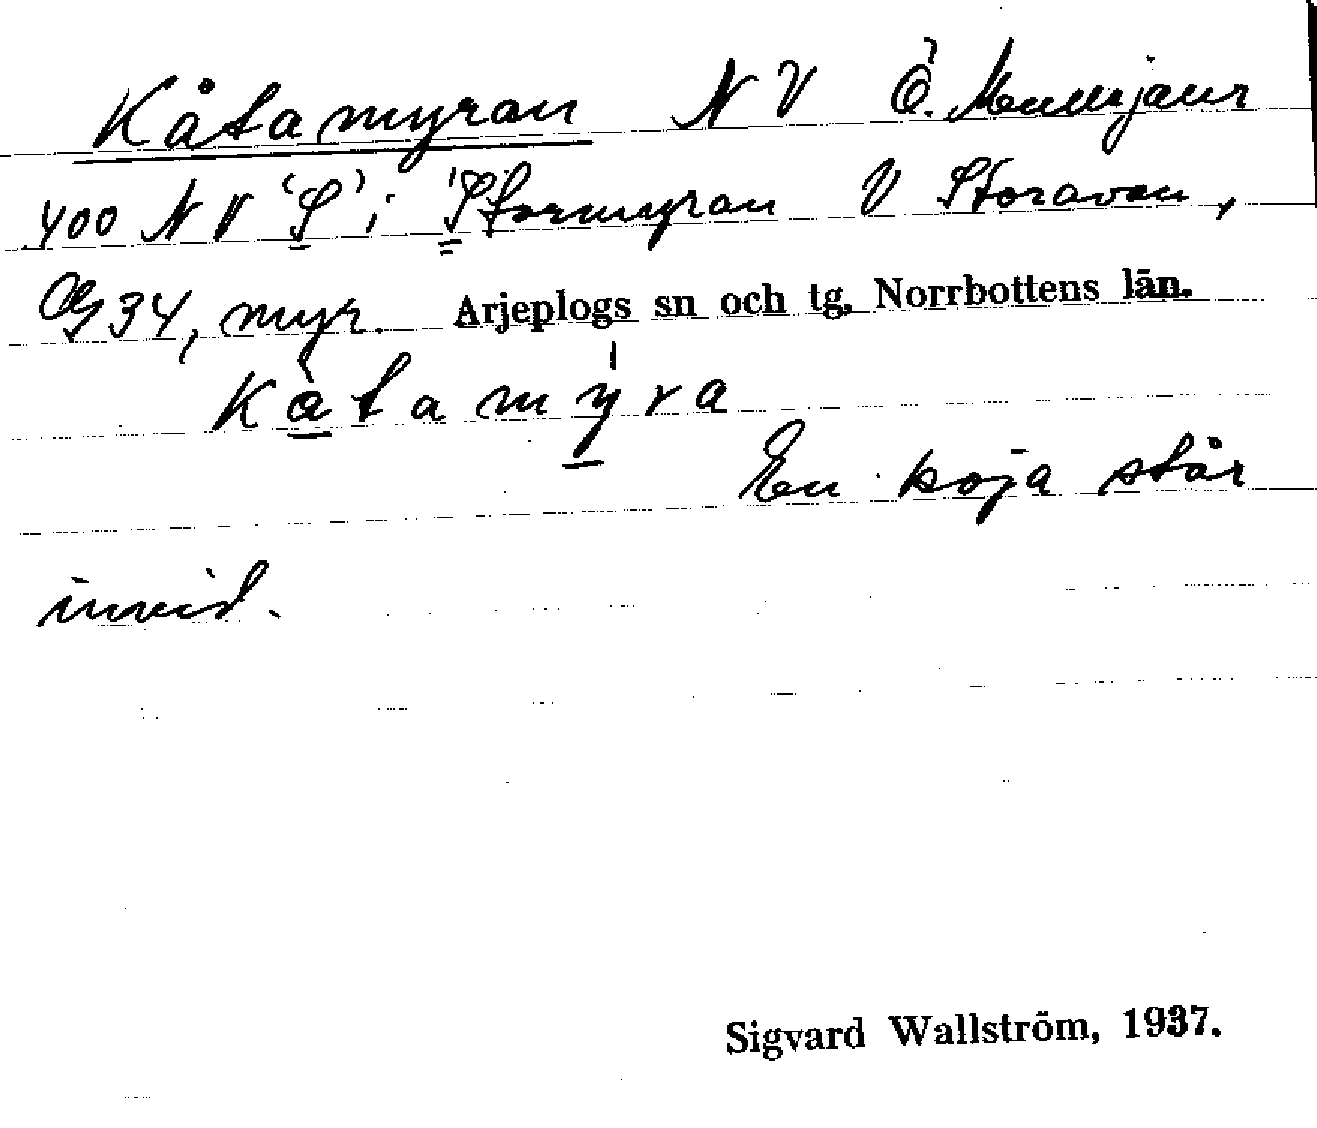 Kåtamyran NV Ö.
400 NV 'S' i 'Stormyran V Storavan,
34, myr. Arjeplogs sn och tg, Norrbottens län.
kàtamýra
En koja står
invid.
Sigvard Wallström, 1937.